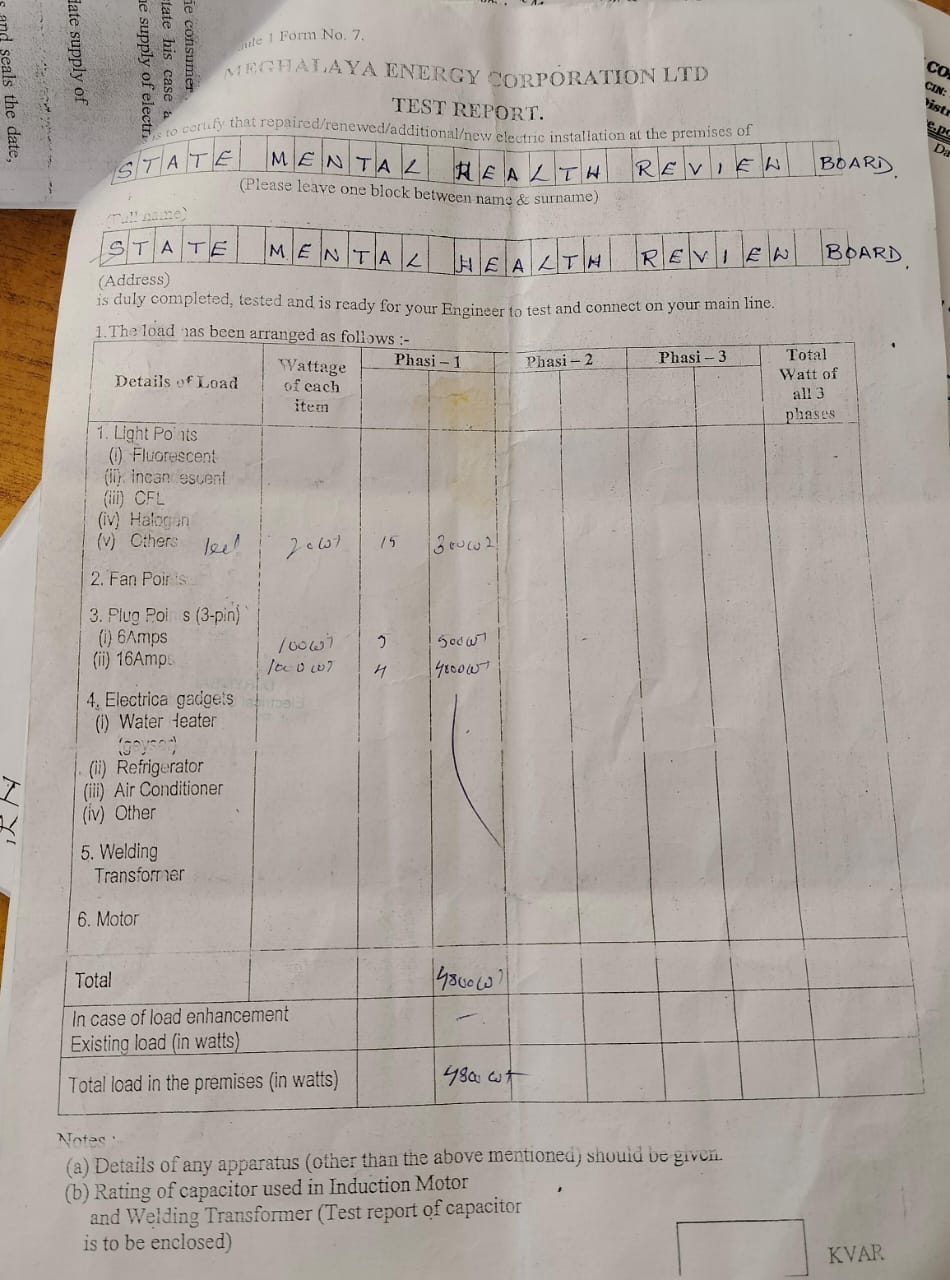 ie consumer
tate his case a
ne supply of electr
late supply of
s and seals the date,
Form No. 7.
MEGHALAYA ENERGY CORPORATION LTD
TEST REPORT.
is to certify that repaired/renewed/additional/new electric installation at the premises of
STATE MENTAL HEALTH REVIEW BOARD.
(Please leave one block between name & surname)
(Full name)
STATE MENTAL HEALTH REVIEW BOARD.
(Address)
is duly completed, tested and is ready for your Engineer to test and connect on your main line.
1. The load has been arranged as follows :-
Details of Load Wattage of each item Phasi – 1 Phasi – 2 Phasi – 3 Total Watt of all 3 phases
1. Light Points
(i) Fluorescent
(ii) Incandescent
(iii) CFL
(iv) Halogen
(v) Others led 20 wt 15 300 w
2. Fan Points
3. Plug Points (3-pin)
(i) 6Amps 100 wt 5 500 wt
(ii) 16Amps 1000 wt 4 4000 wt
4. Electrical gadgets
(i) Water Heater
(geyser)
(ii) Refrigerator
(iii) Air Conditioner
(iv) Other
5. Welding
Transformer
6. Motor
Total 4800 wt
In case of load enhancement
Existing load (in watts) –
Total load in the premises (in watts) 4800 wt
Notes :
(a) Details of any apparatus (other than the above mentioned) should be given.
(b) Rating of capacitor used in Induction Motor
and Welding Transformer (Test report of capacitor
is to be enclosed)
KVAR
CO
CIN:
Distr
Da